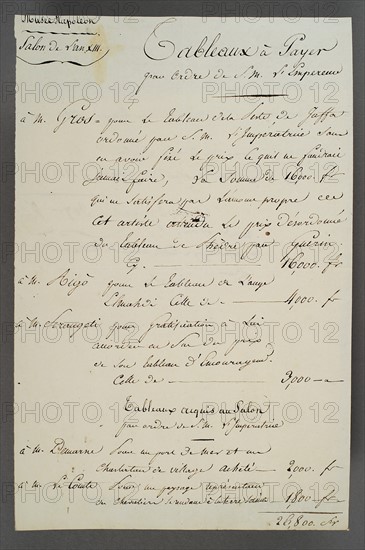 Musée Napoléon
Salon de l'an XIII.
Tableaux à Payer
par ordre de S. M. l'Empereur
à M. Gros = pour le tableau de la Peste de Jaffa
ordonné par S. M. l'Impératrice sans
en avoir fixé le prix ce qu'il ne faudrait
jamais faire, la somme de 16000. fr
qui ne satisfera pas l'amour propre de
cet artiste attendu le prix désordonné
du tableau de Phèdre par Guérin
16,000. fr
à M. Rigo pour le tableau de
Cy 4,000. fr
à M. Serangeli pour gratification à lui
accordée en sus du prix
de son tableau d'Encouragement
celle de 3,000
Tableaux acquis au Salon
par ordre de S. M. l'Impératrice
à M. Demarne Pour un port de mer et un
Charlatan de village acheté 2,000. fr
à M. Le Comte Pour un paysage représentant
1,800. fr
26,800. fr
PHOTO 12